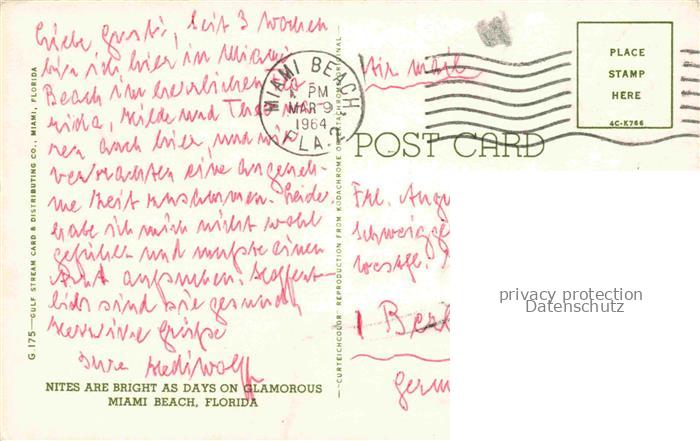 Liebe Gusti, Seit 3 Wochen
bin ich hier in Miami
Beach im herrlichen Flo
rida, Hilde und
ren auch hier, und wir
verbrachten eine angeneh-
me Zeit zusammen. Leider
habe ich mich nicht wohl
gefühlt und musste einen
Arzt aufsuchen. Hoffent-
lich sind Sie gesund.
Herzliche Grüße
Ihre
NITES ARE BRIGHT AS DAYS ON GLAMOROUS
MIAMI BEACH, FLORIDA
G.175—GULF STREAM CARD & DISTRIBUTING CO., MIAMI, FLORIDA
—CURTEICHCOLOR REPRODUCTION FROM KODACHROME OR EKTACHROME ORIGINAL—
MIAMI BEACH
PM
MAR 9
1964
FLA. 2
Air mail
PLACE
STAMP
HERE
4C-K766
POST CARD
Frl.
Westf.
1 Berl
Germ
privacy protection
Datenschutz